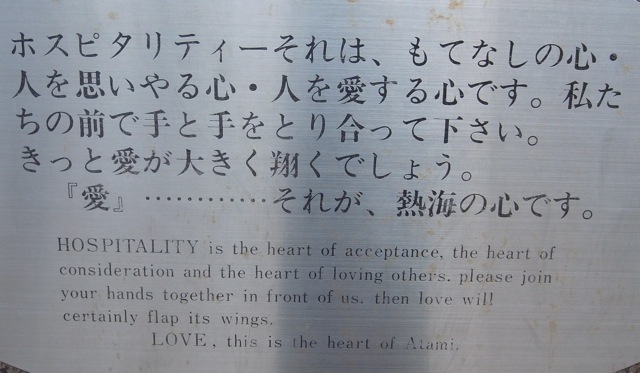 ホスピタリティーそれは、もてなしの心・
人を思いやる心・人を愛する心です。私た
ちの前で手と手をとり合って下さい。
きっと愛が大きく翔くでしょう。
『愛』…………それが、熱海の心です。
HOSPITALITY is the heart of acceptance, the heart of
consideration and the heart of loving others. please join
your hands together in front of us. then love will
certainly flap its wings.
LOVE, this is the heart of Atami.